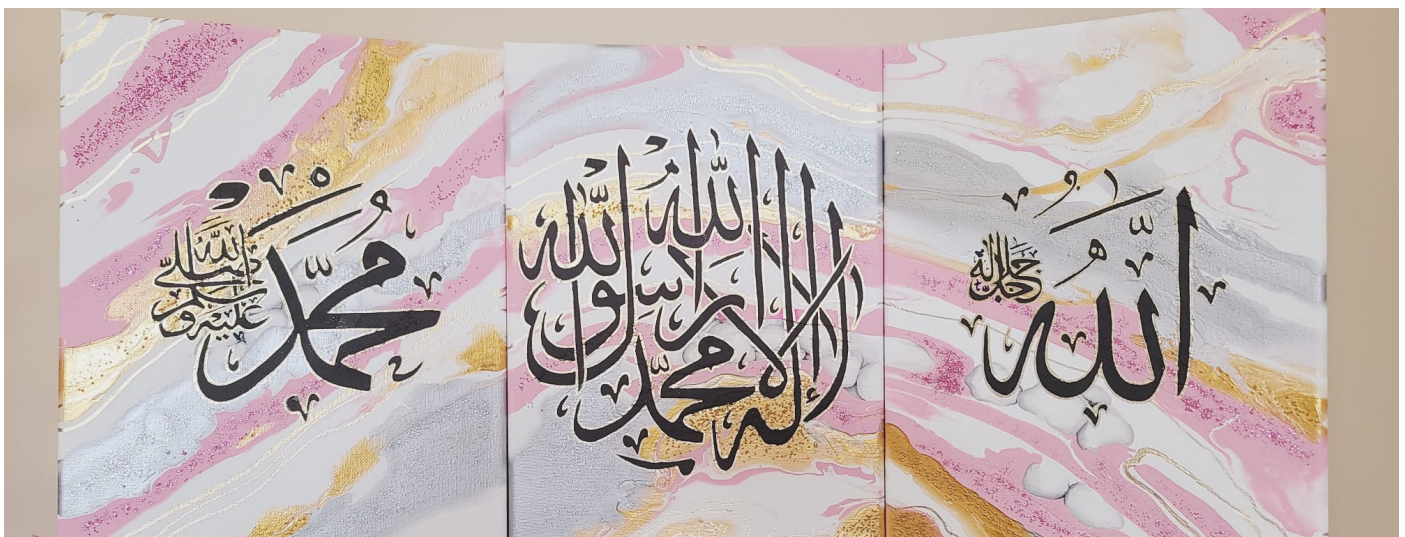 الله جل جلاله
لا إله إلا الله محمد رسول الله
محمد صلى الله عليه وسلم